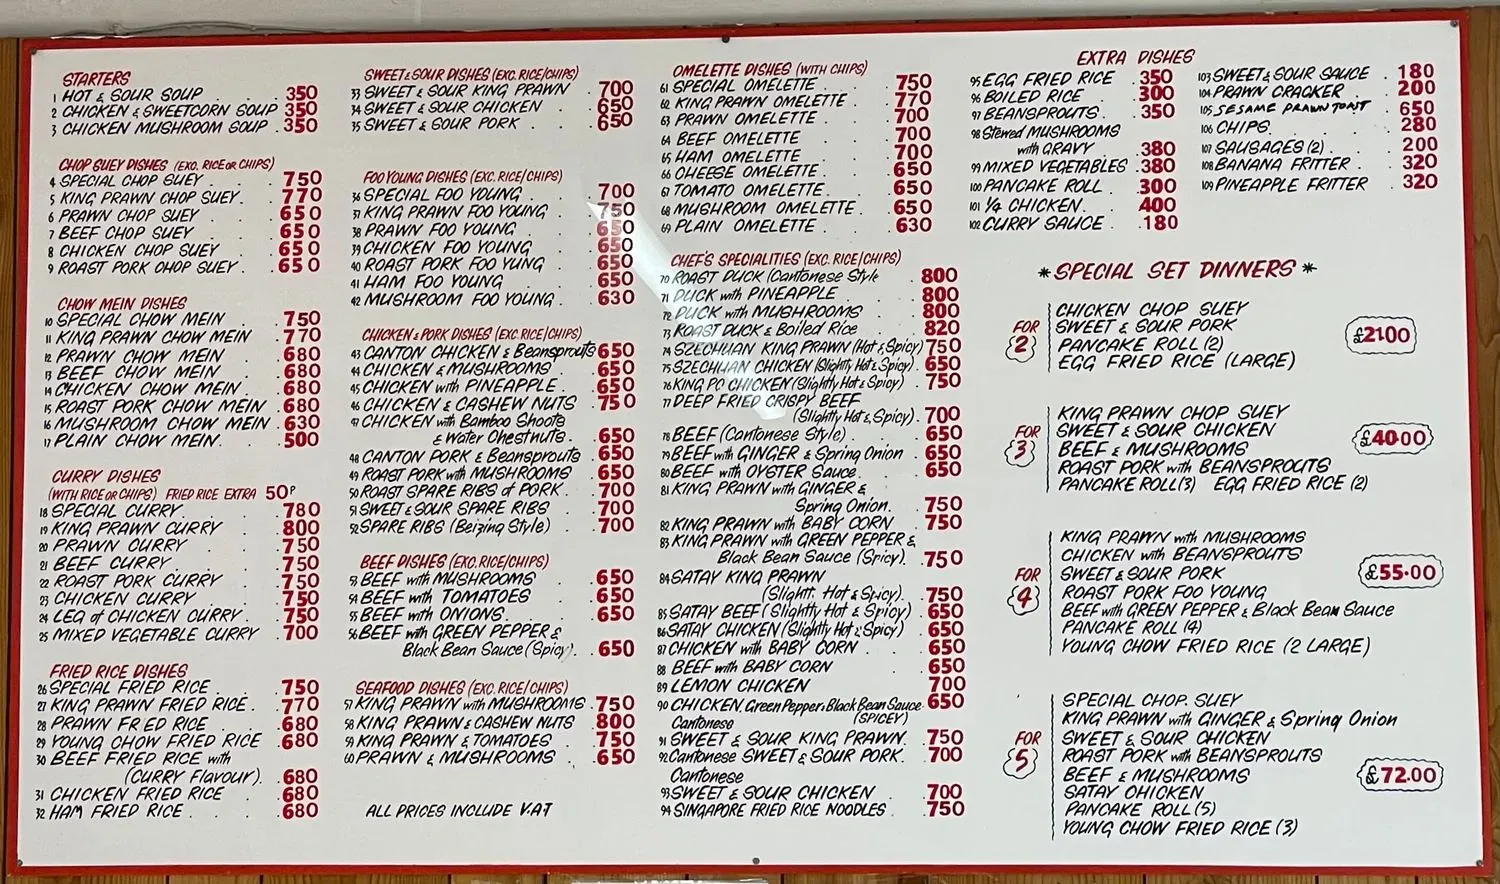 STARTERS
1 HOT & SOUR SOUP . . . 350
2 CHICKEN & SWEETCORN SOUP 350
3 CHICKEN MUSHROOM SOUP . 350
CHOP SUEY DISHES (EXC. RICE OR CHIPS)
4 SPECIAL CHOP SUEY . . 750
5 KING PRAWN CHOP SUEY . . 770
6 PRAWN CHOP SUEY . . 650
7 BEEF CHOP SUEY . . 650
8 CHICKEN CHOP SUEY . . 650
9 ROAST PORK CHOP SUEY . . 650
CHOW MEIN DISHES
10 SPECIAL CHOW MEIN . . 750
11 KING PRAWN CHOW MEIN . 770
12 PRAWN CHOW MEIN . . 680
13 BEEF CHOW MEIN . . 680
14 CHICKEN CHOW MEIN . . 680
15 ROAST PORK CHOW MEIN . 680
16 MUSHROOM CHOW MEIN . 630
17 PLAIN CHOW MEIN . . 500
CURRY DISHES
(WITH RICE OR CHIPS) FRIED RICE EXTRA 50P
18 SPECIAL CURRY . . 780
19 KING PRAWN CURRY . . 800
20 PRAWN CURRY . . 750
21 BEEF CURRY . . . 750
22 ROAST PORK CURRY . . 750
23 CHICKEN CURRY . . 750
24 LEG of CHICKEN CURRY . . 750
25 MIXED VEGETABLE CURRY . 700
FRIED RICE DISHES
26 SPECIAL FRIED RICE . . 750
27 KING PRAWN FRIED RICE . . 770
28 PRAWN FRIED RICE . . 680
29 YOUNG CHOW FRIED RICE . 680
30 BEEF FRIED RICE with
(CURRY Flavour) . . 680
31 CHICKEN FRIED RICE . . 680
32 HAM FRIED RICE . . . 680
SWEET & SOUR DISHES (EXC. RICE/CHIPS)
33 SWEET & SOUR KING PRAWN . 700
34 SWEET & SOUR CHICKEN . . 650
35 SWEET & SOUR PORK . . . 650
FOO YOUNG DISHES (EXC. RICE/CHIPS)
36 SPECIAL FOO YOUNG . . 700
37 KING PRAWN FOO YOUNG . 750
38 PRAWN FOO YOUNG . . 650
39 CHICKEN FOO YOUNG . . 650
40 ROAST PORK FOO YUNG . . 650
41 HAM FOO YOUNG . . 650
42 MUSHROOM FOO YOUNG . . 630
CHICKEN & PORK DISHES (EXC. RICE/CHIPS)
43 CANTON CHICKEN & Beansprouts 650
44 CHICKEN & MUSHROOMS . . 650
45 CHICKEN with PINEAPPLE . . 650
46 CHICKEN & CASHEW NUTS . 750
47 CHICKEN with Bamboo Shoots
& Water Chestnuts . . 650
48 CANTON PORK & Beansprouts . 650
49 ROAST PORK with MUSHROOMS . 650
50 ROAST SPARE RIBS of PORK . . 700
51 SWEET & SOUR SPARE RIBS . 700
52 SPARE RIBS (Beizing Style) . . 700
BEEF DISHES (EXC. RICE/CHIPS)
53 BEEF with MUSHROOMS . . 650
54 BEEF with TOMATOES . . 650
55 BEEF with ONIONS . . . 650
56 BEEF with GREEN PEPPER &
Black Bean Sauce (Spicy) . . 650
SEAFOOD DISHES (EXC. RICE/CHIPS)
57 KING PRAWN with MUSHROOMS . 750
58 KING PRAWN & CASHEW NUTS . 800
59 KING PRAWN & TOMATOES . . 750
60 PRAWN & MUSHROOMS . . 650
ALL PRICES INCLUDE V.A.T
OMELETTE DISHES (WITH CHIPS)
61 SPECIAL OMELETTE . . 750
62 KING PRAWN OMELETTE . . 770
63 PRAWN OMELETTE . . 700
64 BEEF OMELETTE . . 700
65 HAM OMELETTE . . 700
66 CHEESE OMELETTE . . 650
67 TOMATO OMELETTE . . 650
68 MUSHROOM OMELETTE . . 650
69 PLAIN OMELETTE . . 630
CHEF'S SPECIALITIES (EXC. RICE/CHIPS)
70 ROAST DUCK (Cantonese Style . 800
71 DUCK with PINEAPPLE . . 800
72 DUCK with MUSHROOMS . . 800
73 ROAST DUCK & Boiled Rice . . 820
74 SZECHUAN KING PRAWN (Hot & Spicy) 750
75 SZECHUAN CHICKEN (Slightly Hot & Spicy) . 650
76 KING PO CHICKEN (Slightly Hot & Spicy) . 750
77 DEEP FRIED CRISPY BEEF
(Slightly Hot & Spicy) . 700
78 BEEF (Cantonese Style) . . . 650
79 BEEF with GINGER & Spring Onion . 650
80 BEEF with OYSTER Sauce . . 650
81 KING PRAWN with GINGER &
Spring Onion . . 750
82 KING PRAWN with BABY CORN . 750
83 KING PRAWN with GREEN PEPPER &
Black Bean Sauce (Spicy) . 750
84 SATAY KING PRAWN
(Slightt. Hot & Spicy) . . 750
85 SATAY BEEF (Slightly Hot & Spicy) . 650
86 SATAY CHICKEN (Slightly Hot & Spicy) . 650
87 CHICKEN with BABY CORN . . 650
88 BEEF with BABY CORN . . 650
89 LEMON CHICKEN . . . 700
90 CHICKEN, Green Pepper & Black Bean Sauce . 650
Cantonese (SPICEY)
91 SWEET & SOUR KING PRAWN . . 750
92 Cantonese SWEET & SOUR PORK . . 700
Cantonese
93 SWEET & SOUR CHICKEN . . 700
94 SINGAPORE FRIED RICE NOODLES . . 750
EXTRA DISHES
95 EGG FRIED RICE . 350
96 BOILED RICE . . 300
97 BEANSPROUTS . . 350
98 Stewed MUSHROOMS
with GRAVY . 380
99 MIXED VEGETABLES . 380
100 PANCAKE ROLL . . 300
101 1/4 CHICKEN . . 400
102 CURRY SAUCE . . 180
103 SWEET & SOUR SAUCE . 180
104 PRAWN CRACKER . 200
105 SESAME PRAWN TOAST 650
106 CHIPS . . . 280
107 SAUSAGES (2) . . 200
108 BANANA FRITTER . . 320
109 PINEAPPLE FRITTER . 320
* SPECIAL SET DINNERS *
FOR 2
CHICKEN CHOP SUEY
SWEET & SOUR PORK
PANCAKE ROLL (2)
EGG FRIED RICE (LARGE)
£21.00
FOR 3
KING PRAWN CHOP SUEY
SWEET & SOUR CHICKEN
BEEF & MUSHROOMS
ROAST PORK with BEANSPROUTS
PANCAKE ROLL (3) EGG FRIED RICE (2)
£40.00
FOR 4
KING PRAWN with MUSHROOMS
CHICKEN with BEANSPROUTS
SWEET & SOUR PORK
ROAST PORK FOO YOUNG
BEEF with GREEN PEPPER & Black Bean Sauce
PANCAKE ROLL (4)
YOUNG CHOW FRIED RICE (2 LARGE)
£55.00
FOR 5
SPECIAL CHOP. SUEY
KING PRAWN with GINGER & Spring Onion
SWEET & SOUR CHICKEN
ROAST PORK with BEANSPROUTS
BEEF & MUSHROOMS
SATAY CHICKEN
PANCAKE ROLL (5)
YOUNG CHOW FRIED RICE (3)
£72.00